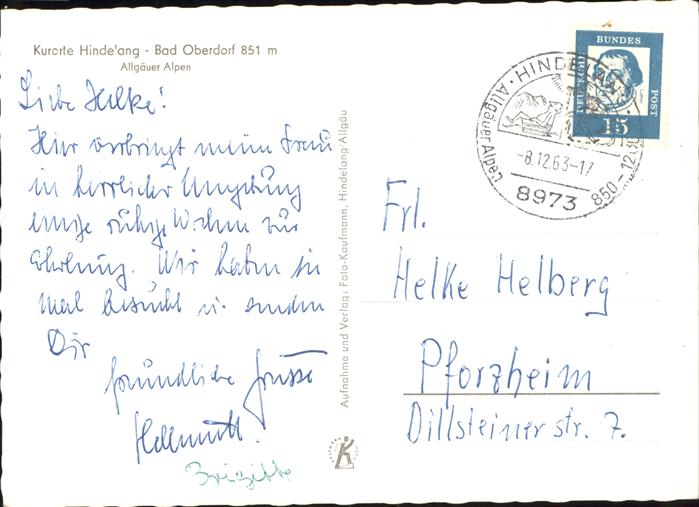 Kurorte Hindelang - Bad Oberdorf 851 m
Allgäuer Alpen
Liebe Helke!
Hier verbringt meine Frau
in herrlicher Umgebung
einige ruhige Wochen zur
Erholung. Wir haben sie
mal besucht u. senden
Dir
freundliche Grüsse
Hellmuth.
Brigitte
Aufnahme und Verlag: Foto-Kaufmann, Hindelang/Allgäu
DEUTSCHE
BUNDES
POST
15
HINDELANG
Allgäuer Alpen
-8.12.63-17
850-1200
8973
Frl.
Helke Helberg
Pforzheim
Dillsteiner str. 7.